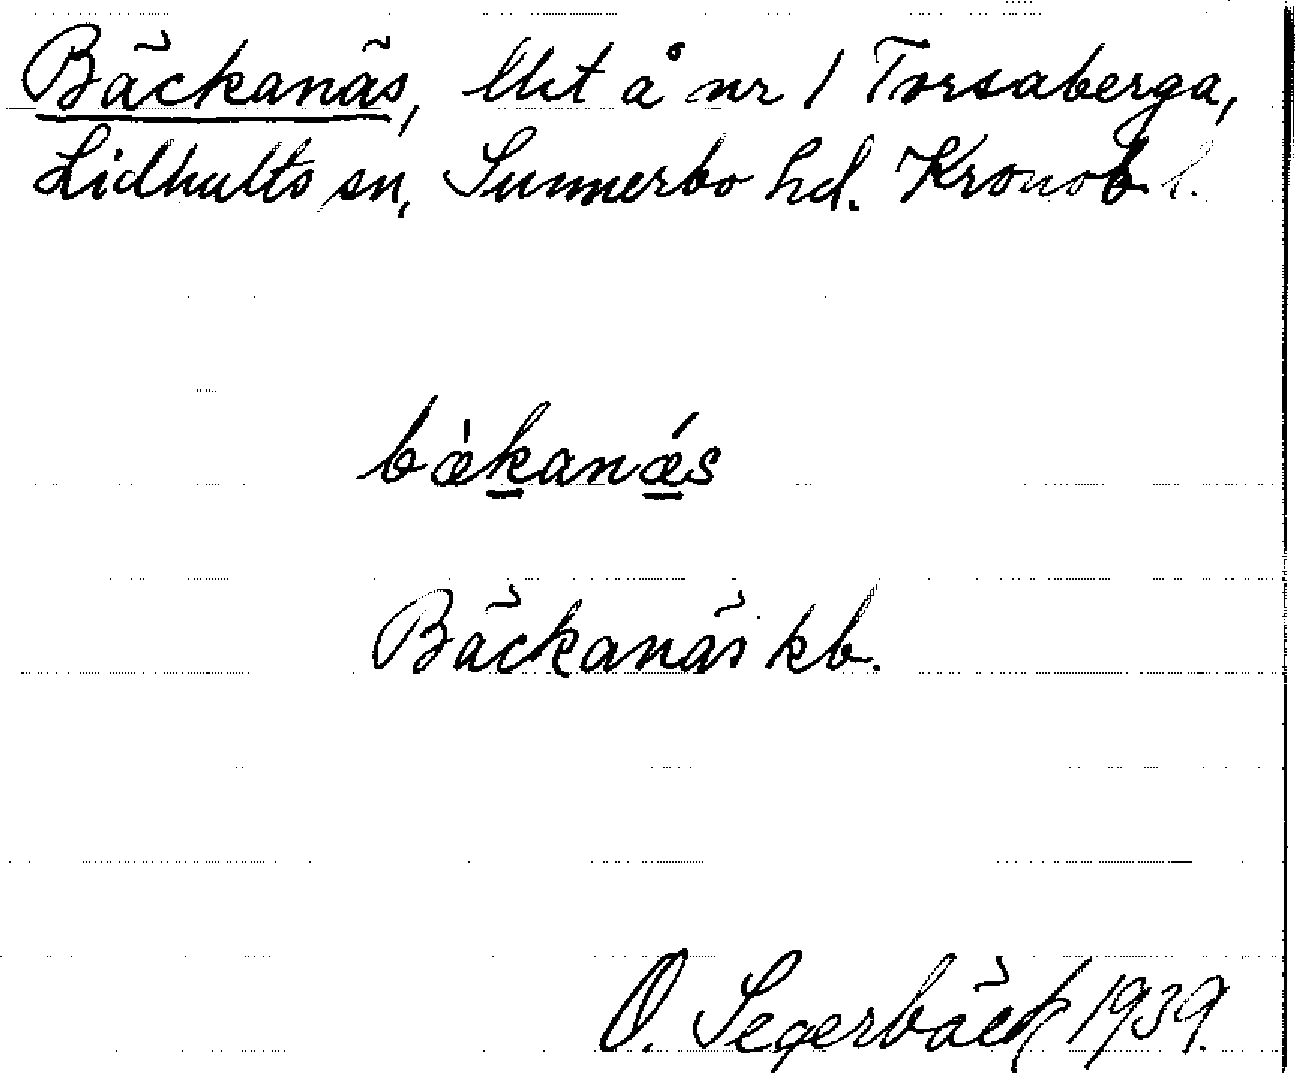 Bäckanäs, lht å nr 1 Torsaberga,
Lidhults sn, Sunnerbo hd. Kronob. l.
bæ̀kanǽs
Bäckanäs kb.
O. Segerbäck 1939.